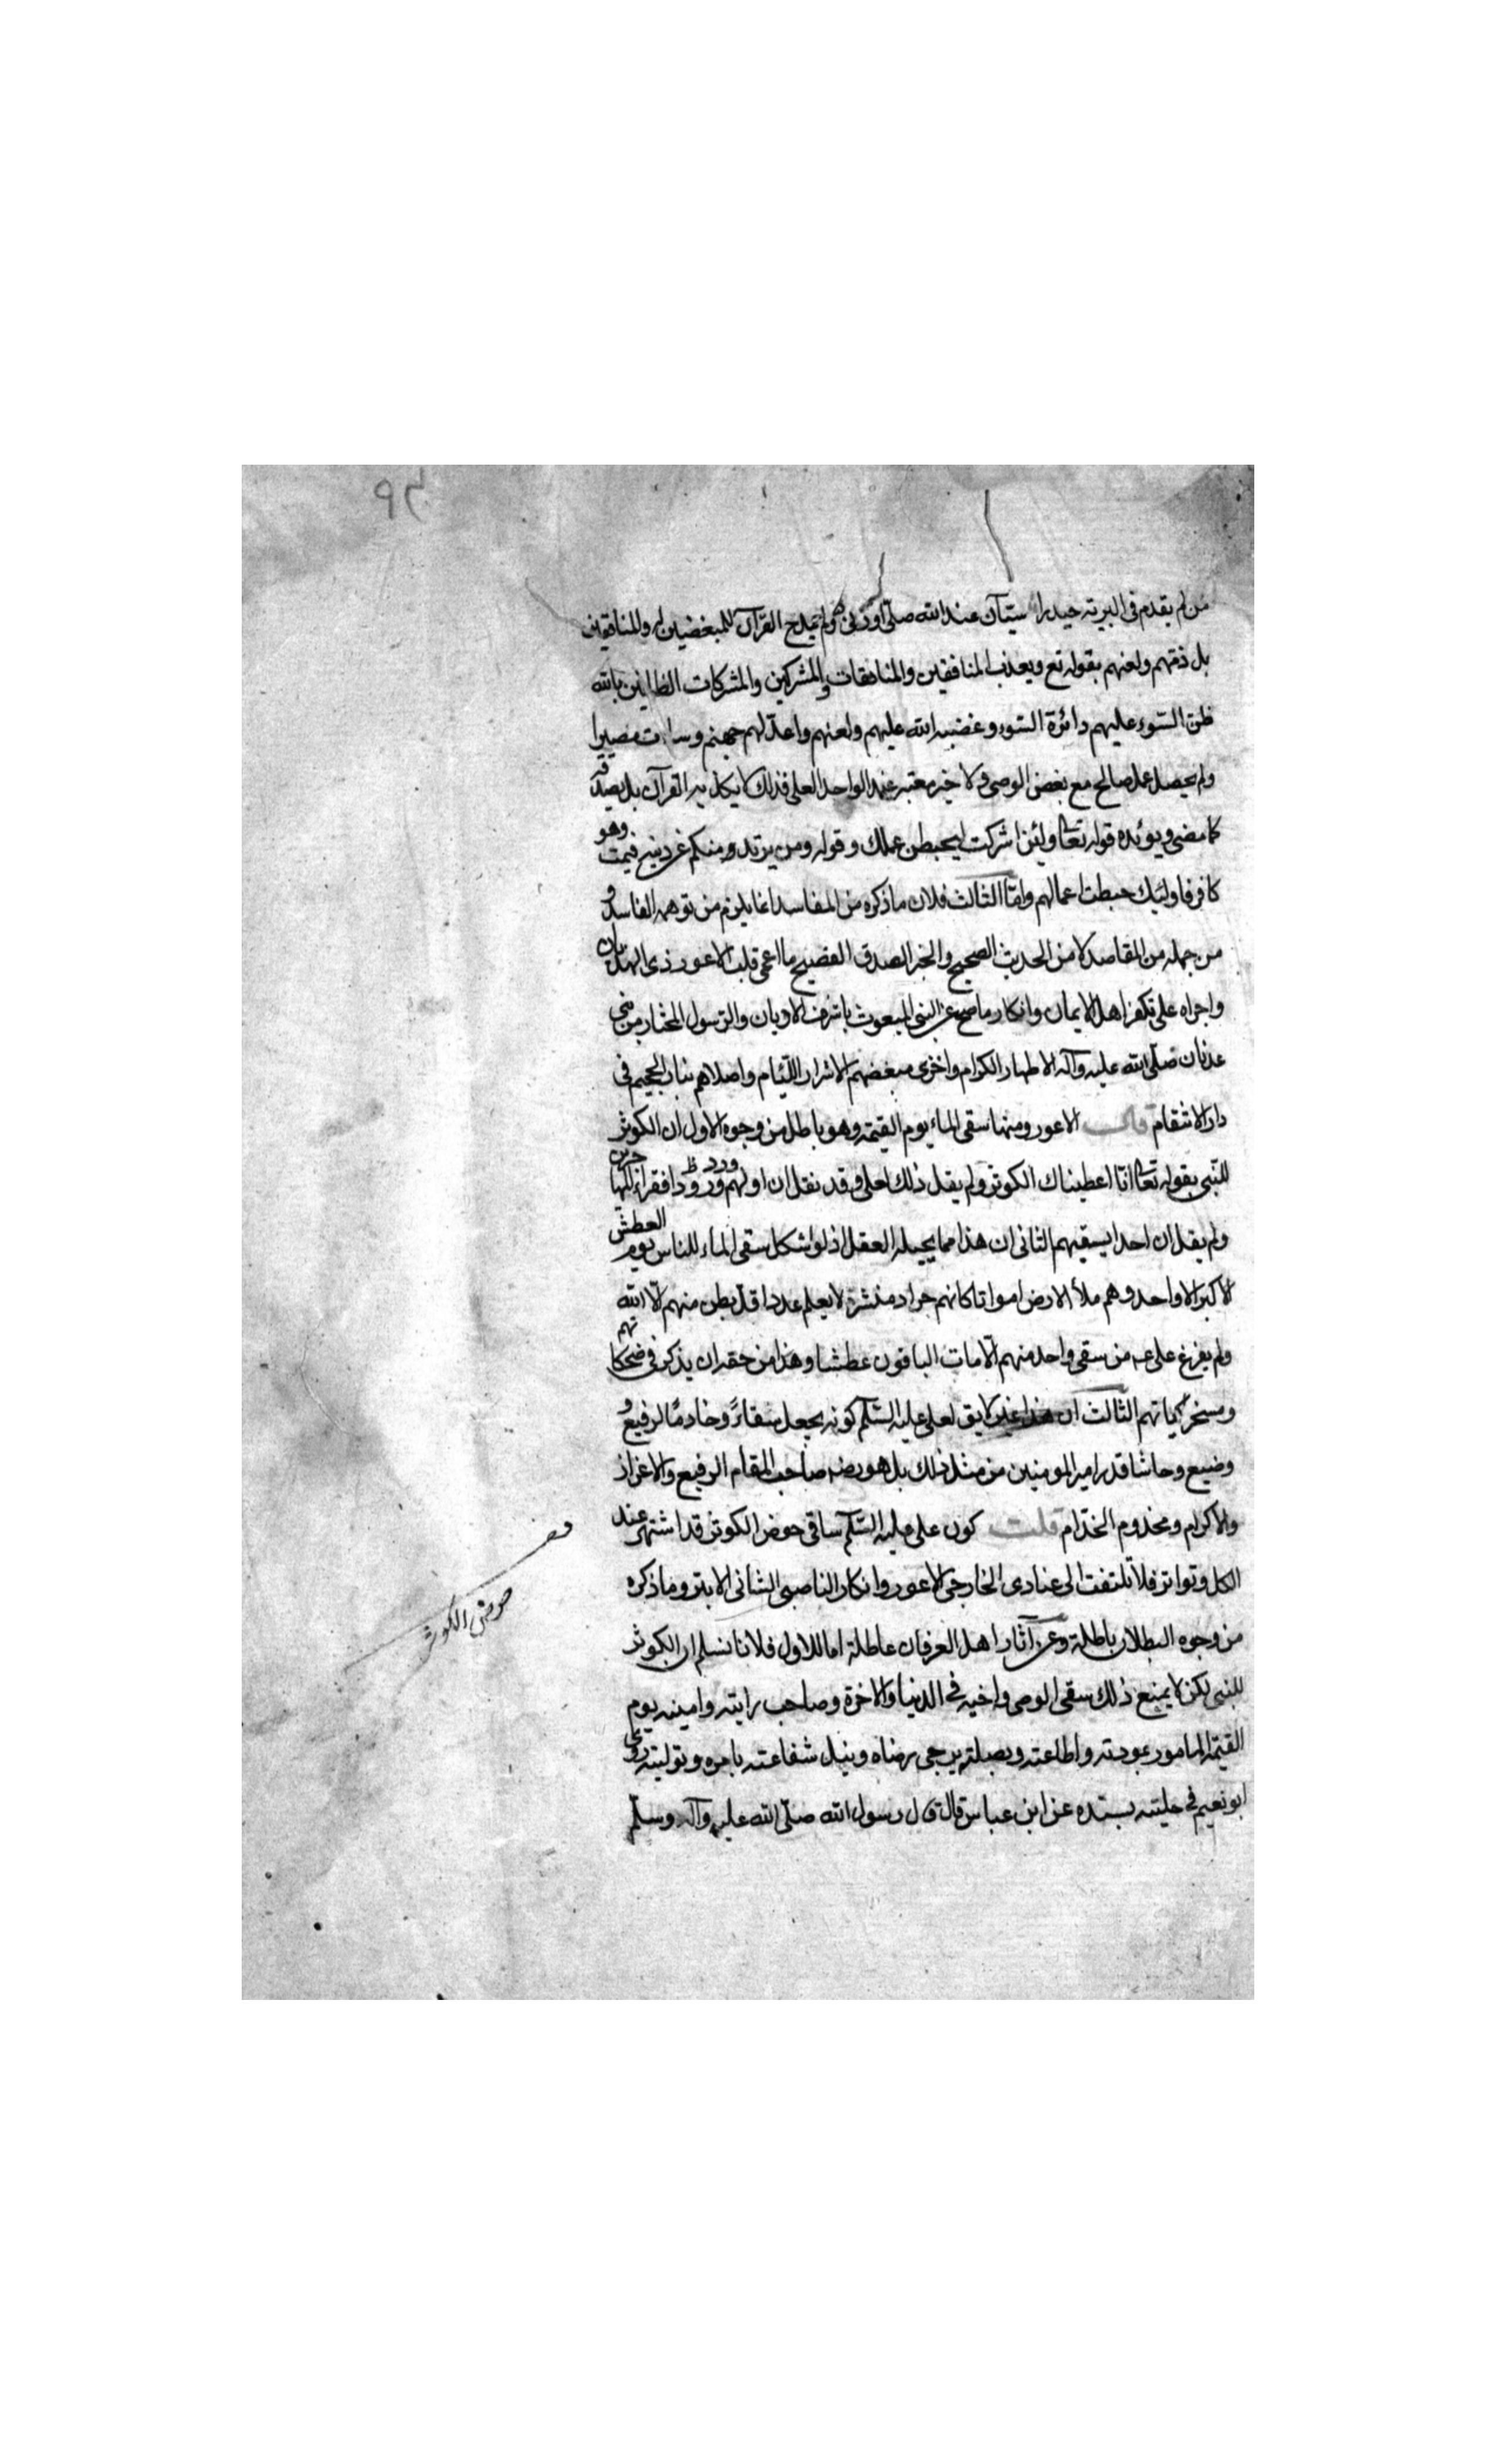 ٩٣
من لم يقدم فى البرية حيدرا سيّان عند الله صلّى او زنى ولم يمدح القرآن للمبغضين له والمنافقين
بل ذمّهم ولعنهم بقوله تع ويعذب المنافقين والمنافقات والمشركين والمشركات الظانين بالله
ظن السّوء عليهم دائرة السّوء وغضب الله عليهم ولعنهم واعدّ لهم جهنم وساءت مصيرا
ولم يحصل عمل صالح مع بغض الوصى ولا خير معتبر عند الواحد العلى فذلك لا يكذبه القرآن بل يصدقه
كما مضى ويؤيده قوله تعا ولئن اشركت ليحبطن عملك وقوله ومن يرتدد منكم عن دينه فيمت وهو
كافر فاولئك حبطت اعمالهم وامّا الثالث فلان ما ذكره من المفاسد انما يلزم من توهمه الفاسد و
من جهله من المقاصد لا من الحديث الصحيح والخبر الصدق الفضيح ما اعمى قلب الاعور ذى الهذيان
واجراه على تكفير اهل الايمان وانكار ما صح عن النبى المبعوث باشرف الاديان والرسول المختار من بنى
عدنان صلّى الله عليه وآله الاطهار الكرام واخزى مبغضهم الاشرار اللئام واصلاهم بنار الجحيم فى
دار الانتقام قال الاعور ومنها سقى الماء يوم القيمة وهو باطل من وجوه الاول ان الكوثر
للنّبى بقوله تعا انا اعطيناك الكوثر ولم يقل ذلك لعلى وقد نقل ان اولهم ورودا فقراء المهاجرين
ولم يقل ان احدا يسقيهم الثانى ان هذا مما يحيله العقل اذ لو اشكل سقى الماء للناس يوم العطش
الاكبر الا واحد وهم ملأ الارض امواتا كانهم جراد منتشر لا يعلم عددا قد بطن منهم الّا الله
ولم يفرغ على ع من سقى واحد منهم الّا مات الباقون عطشا وهذا من حقه ان يذكر فى ضحكاتهم
ومسخرياتهم الثالث ان هذا غير لايق لعلى عليه السّلم كونه يجعل سقاءً وخادمًا لرفيع و
وضيع وحاشا قدر امير المومنين من مثل ذلك بل هو رضه صاحب المقام الرفيع والاعزاز
والاكرام ومخدوم الخدّام قلت كون على عليه السّلم ساقى حوض الكوثر قد اشتهر عند
الكل وتواتر فلا تلتفت الى عنادى الخارجى الاعور وانكار الناصبى الشانى الابتر وما ذكره
من وجوه البطلان باطلة وعن آثار اهل العرفان عاطلة اما الاول فلانا نسلم ان الكوثر
للنبى لكن لا يمنع ذلك سقى الوصى واخيه فى الدنيا والاخرة وصاحب رايته وامينه يوم
القيمة المامور بمودته واطاعته وبصلته يرجى رضاه وينيل شفاعته بامره وتوليته روى
ابو نعيم فى حليته بسنده عن ابن عباس قال قال رسول الله صلّى الله عليه وآله وسلّم
حوض الكوثر